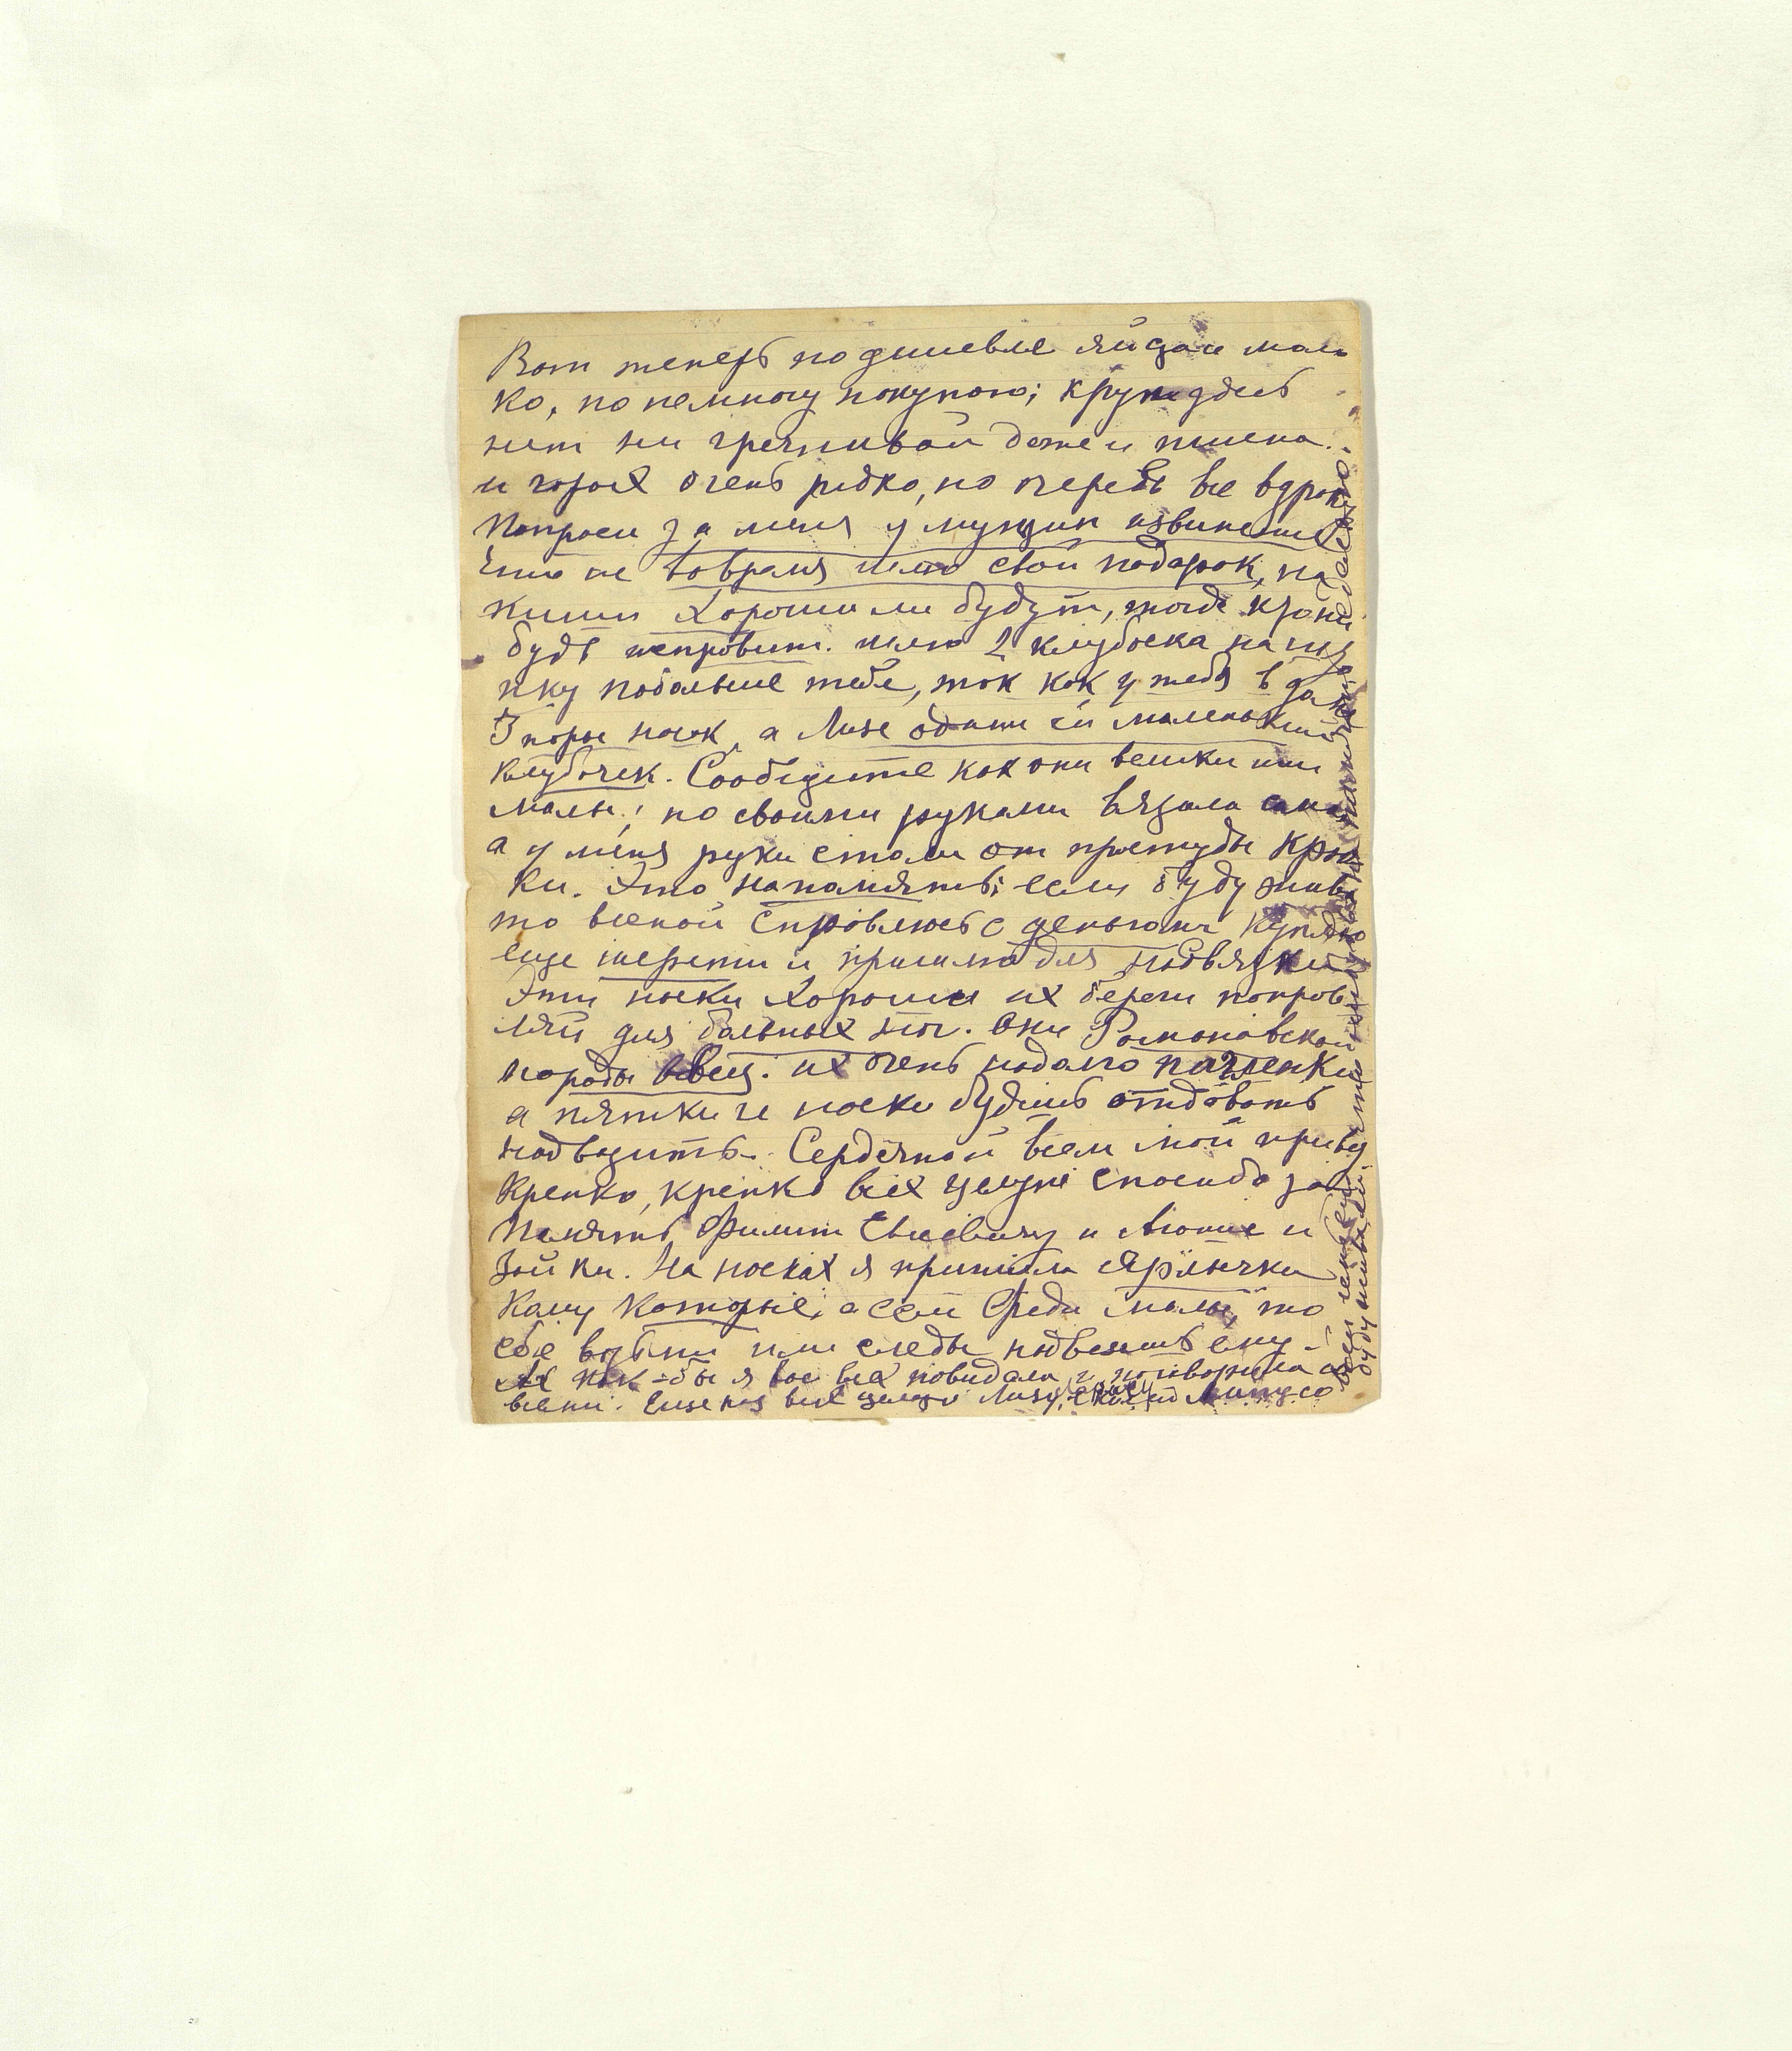 Вот теперь подишевле яйца и моло
ко, по немногу покупаю; крупы здесь
нет ни гречнивой даже и пшена.
и горох очень редко, но очередь все вдрака
Попроси за меня у мущин извинение
Что не вовремя шлю свой подарок, на
кими хороши ли будут, тогда
будь исправит. шлю 2 клубочка на
пку побольше тебе, так как у тебя в
3 поры носок, а Лизе одаши ей маленький
клубочек. Сообщите как они велики или
малы; но своими руками вязала сама
а у меня руки стали от простуды крю
ки. Это на память; если буду жива
то весной справлюсь с деньгами куплю
еще шерсти и пришлю для подвязки
Эти носки хороши их береги поправ
ляй для больных ног. Они Романовской
породы овец. их очень надолго пагленки
а пятки и носки будешь отдовать
надвязить. Сердечной всем мой привед
Крепко, крепко всех целую спасибо за
память Филип Евсевичу и Анюте и
Зойки. На носках я пришила ярлычки
Кому которые, а если Феди малы, то
себе возьми или следы надвежишь ему
Ах как-бы я вас всех повидала и поговорила со
всеми. Еще раз всех целую Лизу,